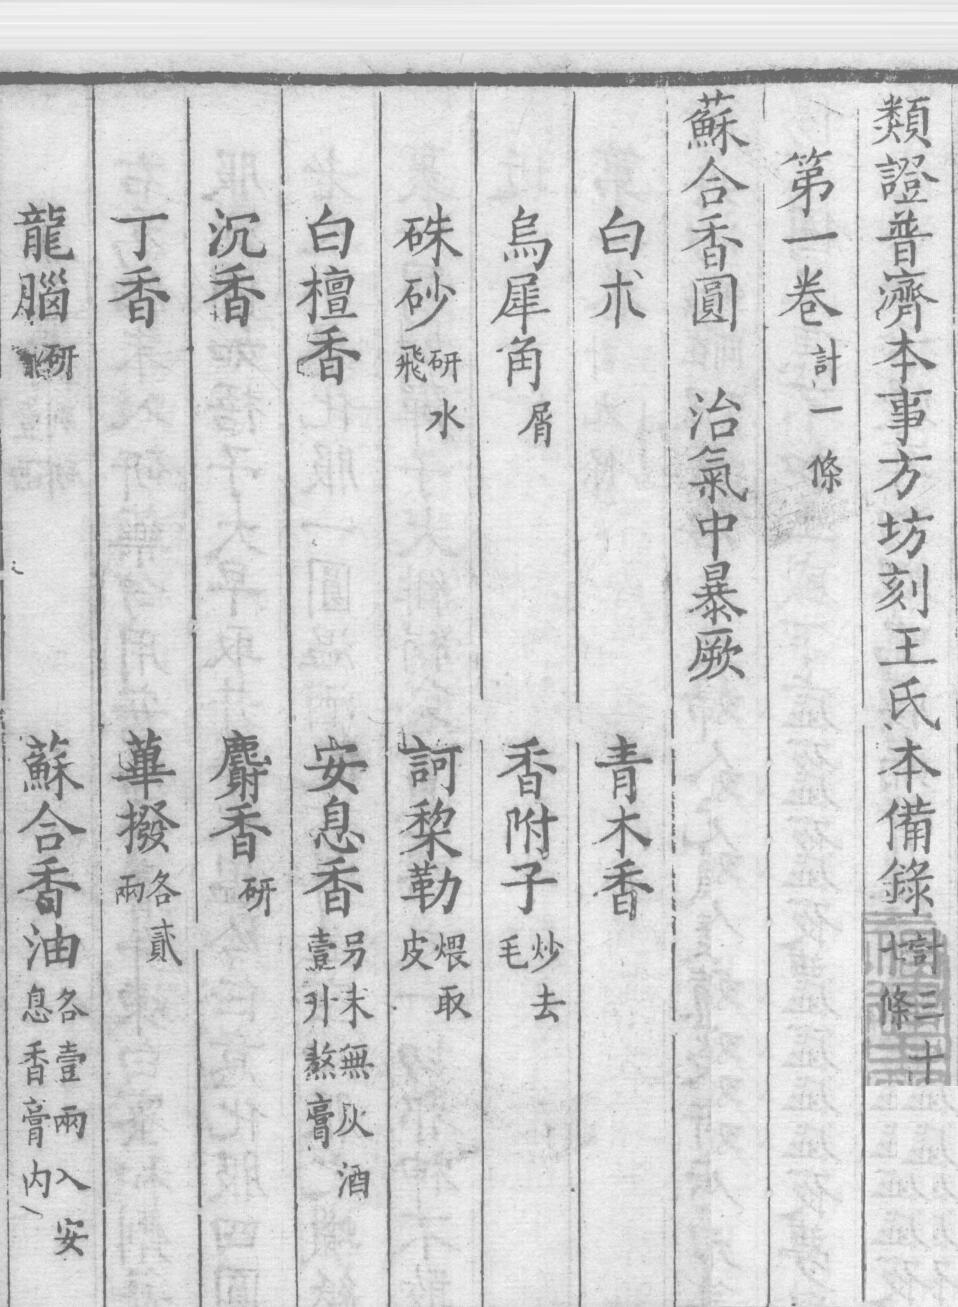 類證普濟本事方坊刻王氏本備錄計三十七條
第一卷計一條
蘇合香圓 治氣中暴厥
白朮 青木香
烏犀角屑 香附子炒去毛
硃砂研水飛 訶棃勒煨取皮
白檀香 安息香另末無灰酒壹升熬膏
沉香 麝香研
丁香 蓽撥各貳兩
龍腦研 蘇合香油各壹兩入安息香膏内